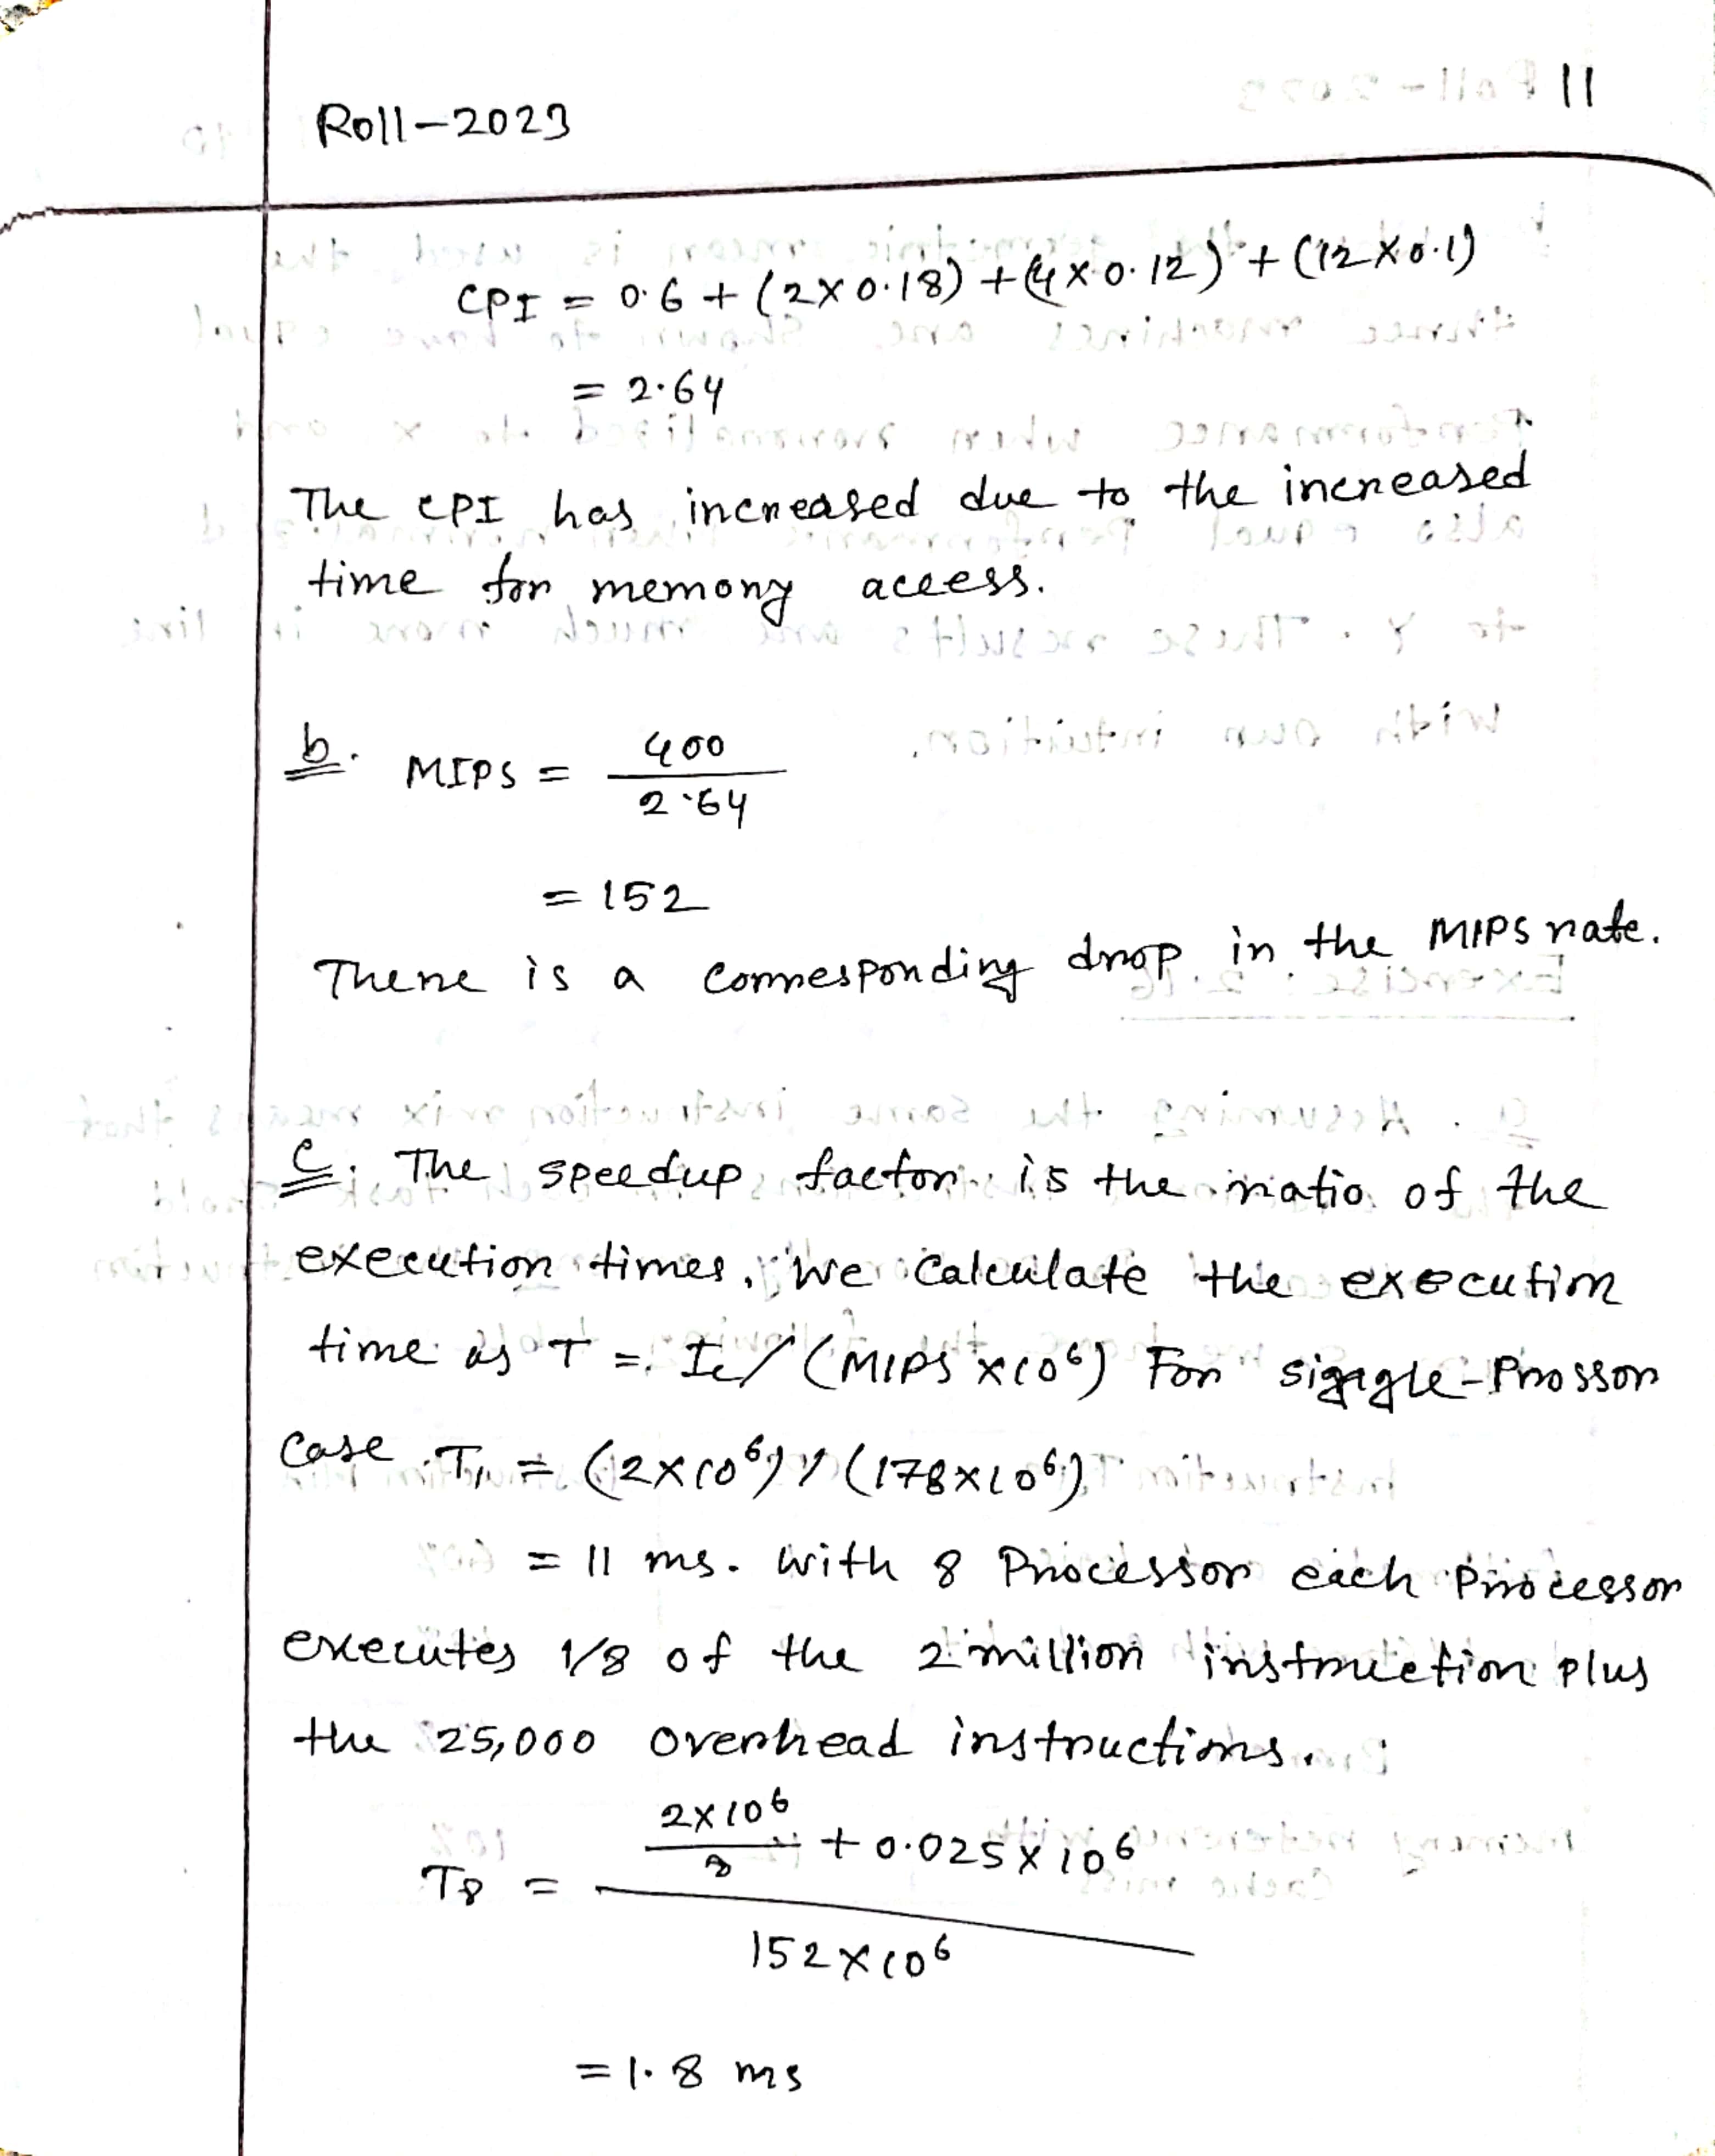 Roll-2023
11
CPI = 0.6 + (2×0.18) + (4×0.12) + (12×0.1)
= 2.64
The CPI has increased due to the increased
time for memory access.
b. MIPS = 400
2.64
= 152
There is a corresponding drop in the MIPS rate.
c. The speedup factor is the ratio of the
execution times. We calculate the execution
time as T = Ic/(MIPS ×10⁶) For sigagle-Prossor
Case T₁ = (2×10⁶) / (178×10⁶)
= 11 ms. With 8 Processor each Processor
executes 1/8 of the 2 million instruction plus
the 25,000 overhead instructions.
2×10⁶
8 + 0.025×10⁶
T8 =
152×10⁶
= 1.8 ms